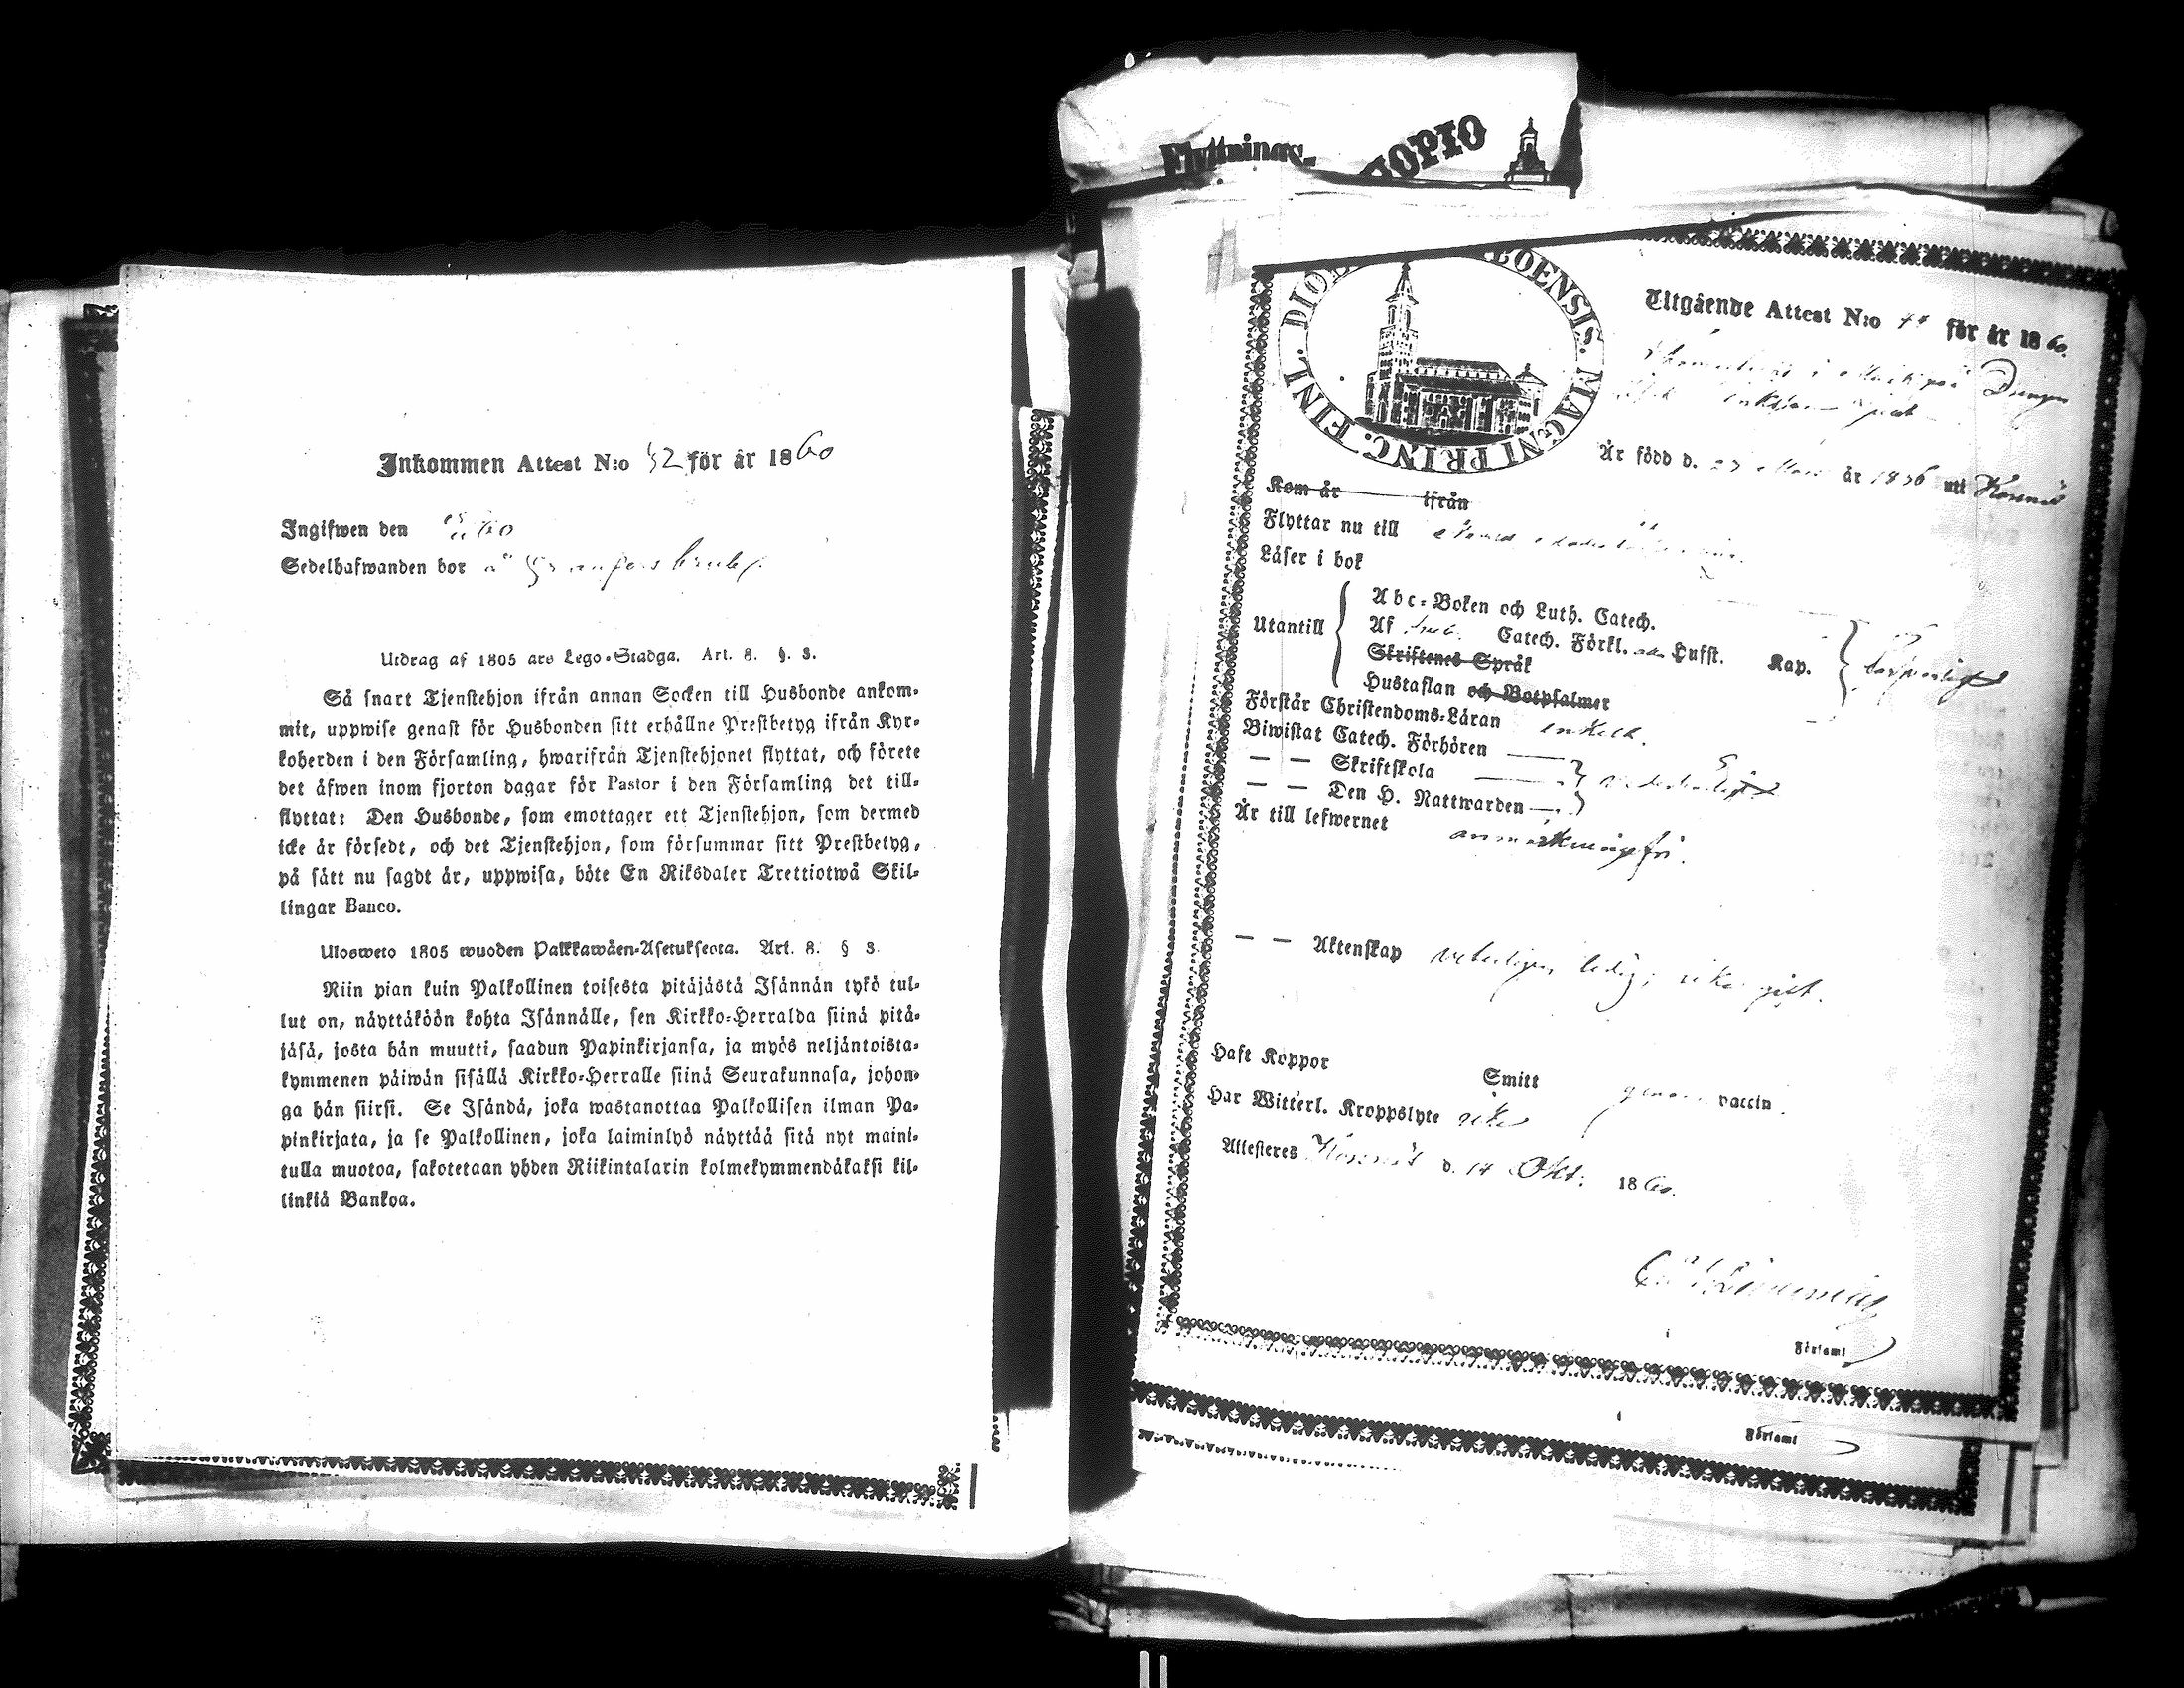 Inkommen Attest N:o 52 för år 1860
Ingifwen den 60
Sedelhafwanden bor å
Utdrag af 1805 års Lego-Stadga. Art. 8. §. 3.
Så snart Tjenstehjon ifrån annan Socken till Husbonde ankom-
mit, uppwise genast för Husbonden sitt erhållne Prestbetyg ifrån Kyr-
koherden i den Församling, hwarifrån Tjenstehjonet flyttat, och förete
det äfwen inom fjorton dagar för Pastor i den Församling det till-
flyttat: Den Husbonde, som emottager ett Tjenstehjon, som dermed
icke är försedt, och det Tjenstehjon, som försummar sitt Prestbetyg,
på sätt nu sagdt är, uppwisa, böte En Riksdaler Trettiotwå Skil-
lingar Banco.
Ulosweto 1805 wuoden Palkkawäen-Asetuksesta. Art. 8. § 3.
Niin pian kuin Palkollinen toisesta pitäjästä Isännän tykö tul-
lut on, näyttäköön kohta Isännälle, sen Kirkko-Herralda siinä pitä-
jäsä, josta hän muutti, saadun Papinkirjansa, ja myös neljäntoista-
kymmenen päiwän sisällä Kirkko-Herralle siinä Seurakunnasa, johon-
ga hän siirsi. Se Isändä, joka wastanottaa Palkollisen ilman Pa-
pinkirjata, ja se Palkollinen, joka laiminlyö näyttää sitä nyt maini-
tulla muotoa, sakotetaan yhden Riikintalarin kolmekymmendäkaksi kil-
linkiä Bankoa.
Flyttnings-
UOPIO
DIOE BOENSIS. MAGNI PRINC. FINL.
Utgående Attest N:o för år 1860.
i Drängen
Är född d. 27 år 1836 uti Korsnäs
Kom år ifrån
Flyttar nu till
Läser i bok
Utantill
Abc-Boken och Luth. Catech.
Af Sveb. Catech. Förkl. och Husst. Kap.
Skriftenes Språk
Hustaflan och Botpsalmer
Förstår Christendoms-Läran enkelt.
Biwistat Catech. Förhören
— — Skriftskola
— — Den H. Nattwarden
Är till lefwernet anmärkningsfri.
— — Äktenskap veterligen ledig, icke gift.
Haft Koppor Smitt genom vaccin.
Har Witterl. Kroppslyte icke
Attesteres Korsnäs d. 14 Okt. 1860.
Förfaml
Förfaml